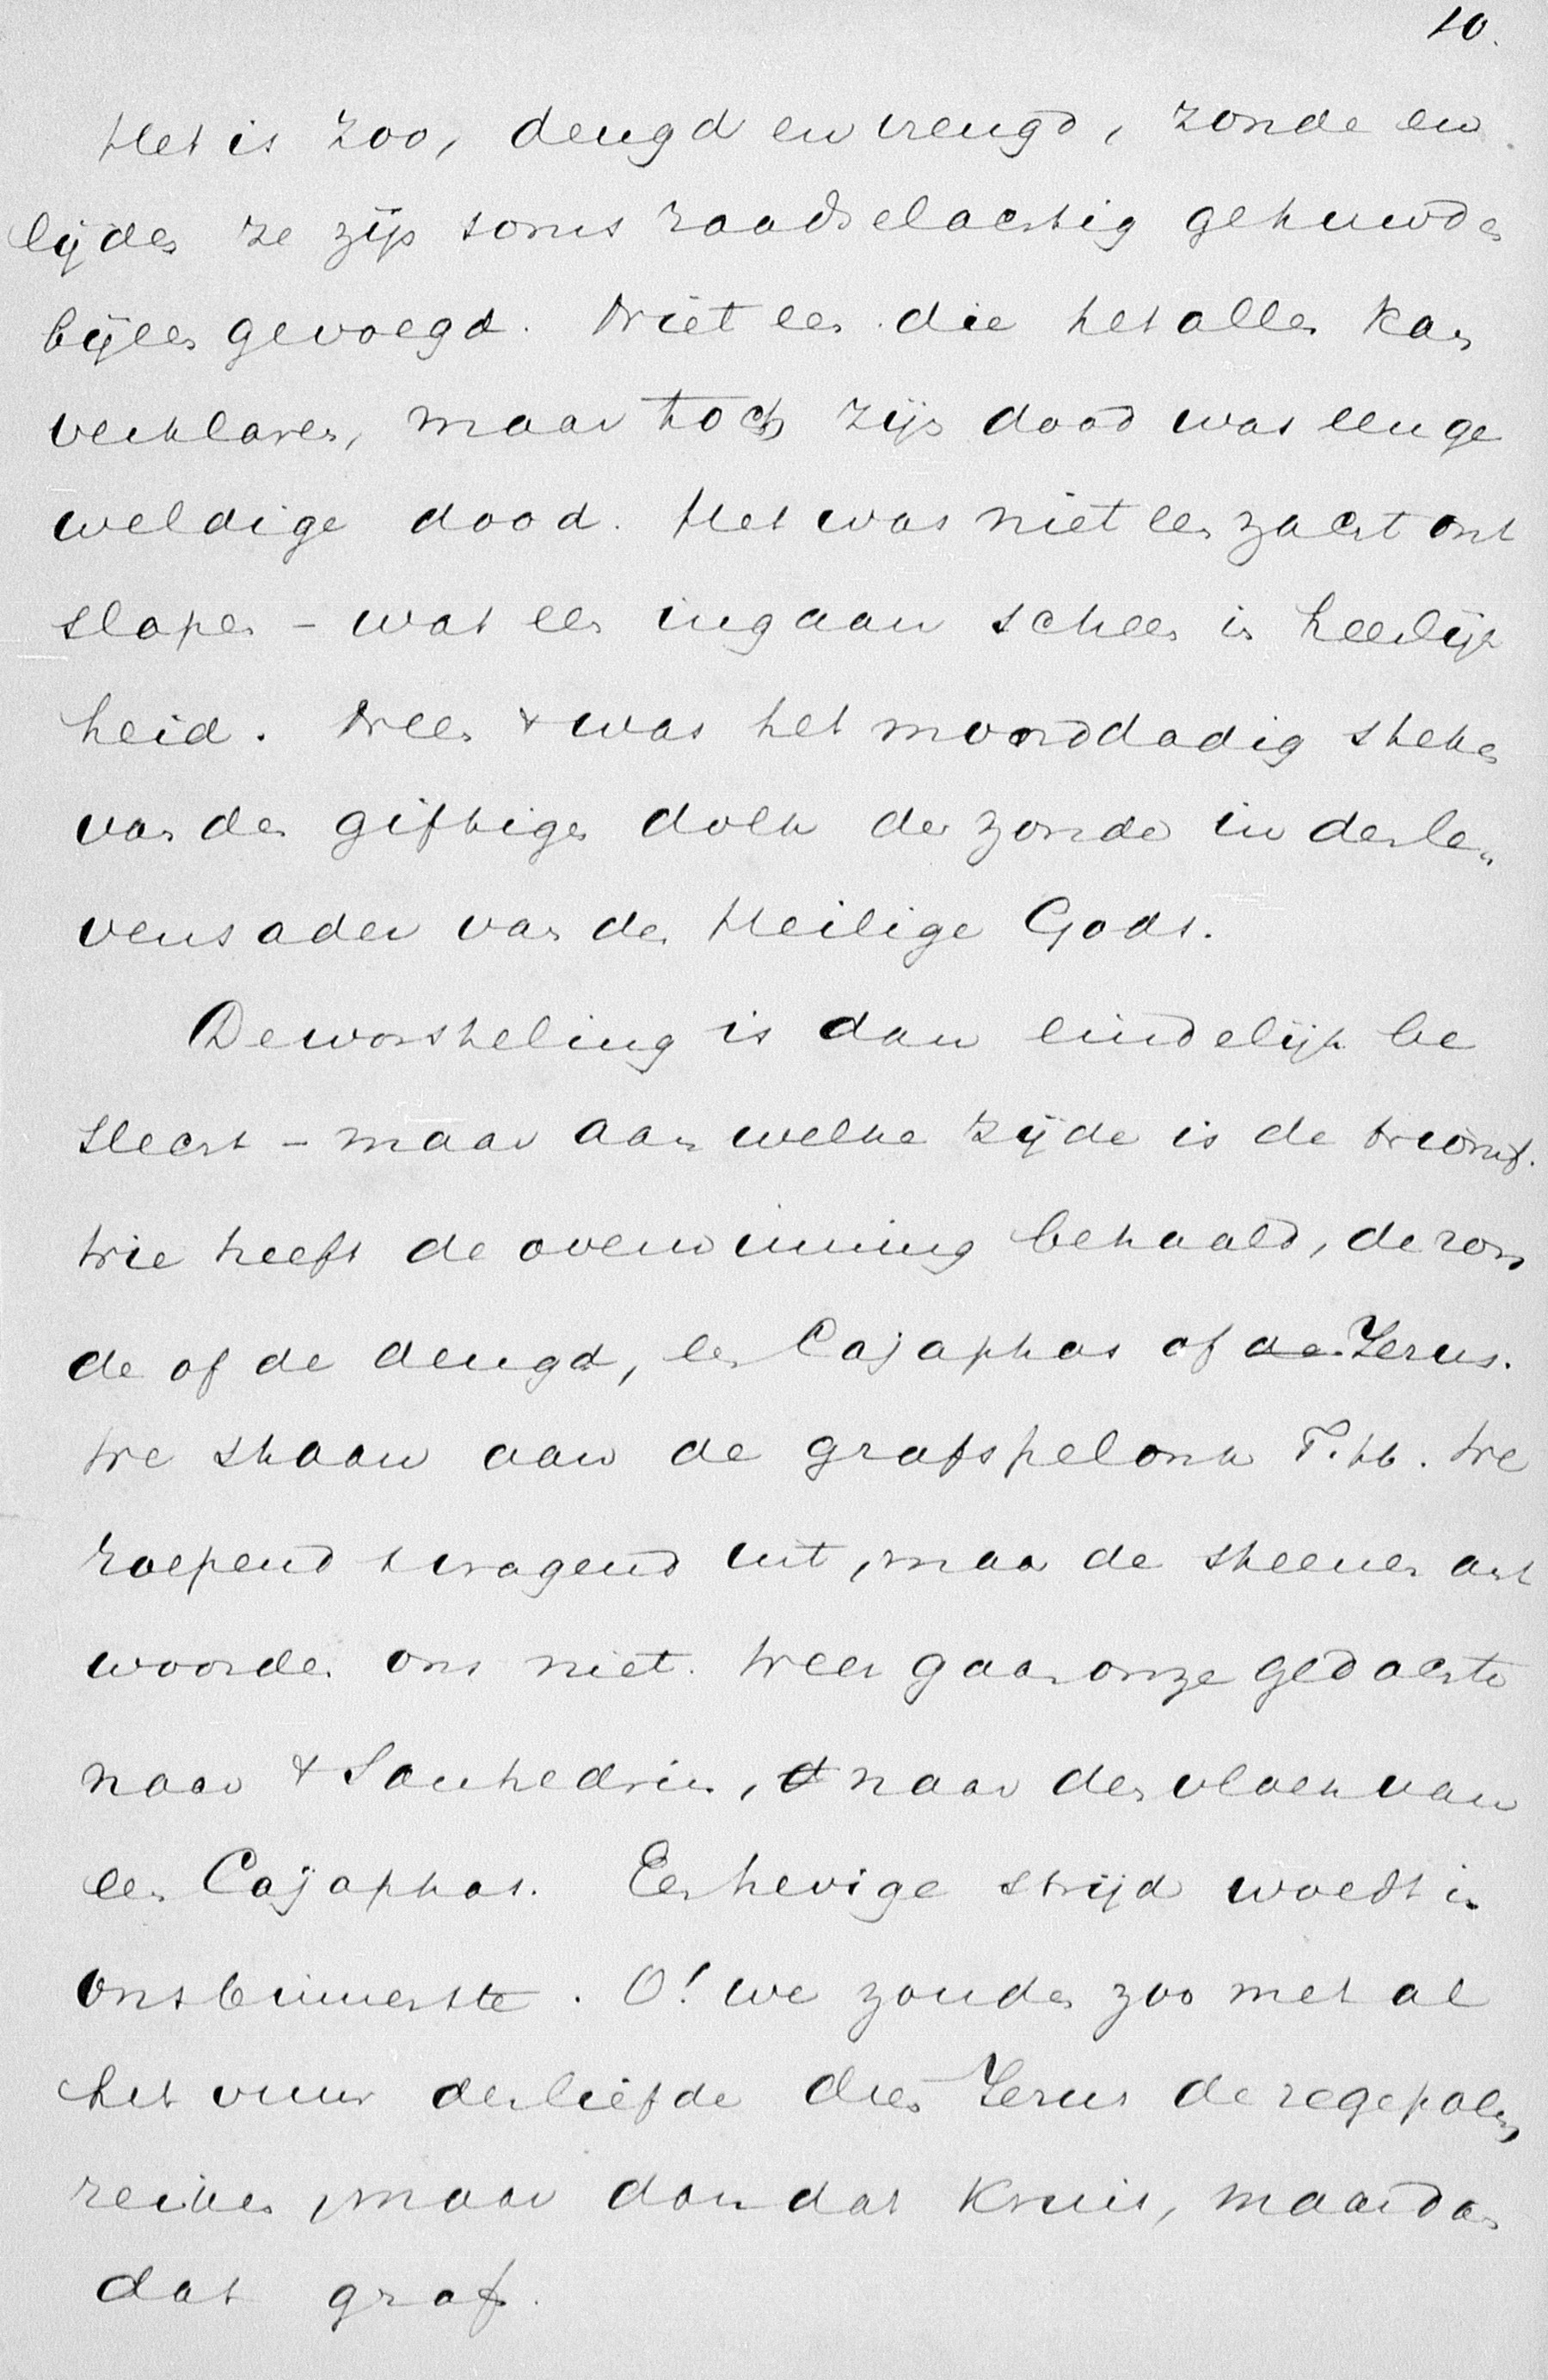 10.
Het is zoo, deugd en vreugd, zonde en
lijden ze zijn soms raadselachtig gehuwd en
bijeen gevoegd. Niet een die het alles kan
verklaren, maar toch zijn dood was een ge
weldige dood. Het was niet een zacht ont
slapen - wat een ingaan scheen in heerlijk
heid. Neen + was het moorddadig steken
van den giftigen dolk der zonde in der le„
vensader van den Heilige Gods.
De worsteling is dan eindelijk be
slecht - maar aan welke zijde is de triomf.
Wie heeft de overwinning behaald, de zon
de of de deugd, een Cajaphas of de Jezus.
We staan aan de grafspelonk T. H. We
roepend vragend uit, maar de steenen ant
woorden ons niet. Weer gaan onze gedachte
naar + Sanhedrin, d naar den vloek van
een Cajaphas. Een hevige strijd woedt in
ons binnenste. O! we zouden zoo met al
het vuur der liefde dien Jezus de zegepalm
reiken, maar dan dat kruis, maar dan
dat graf.